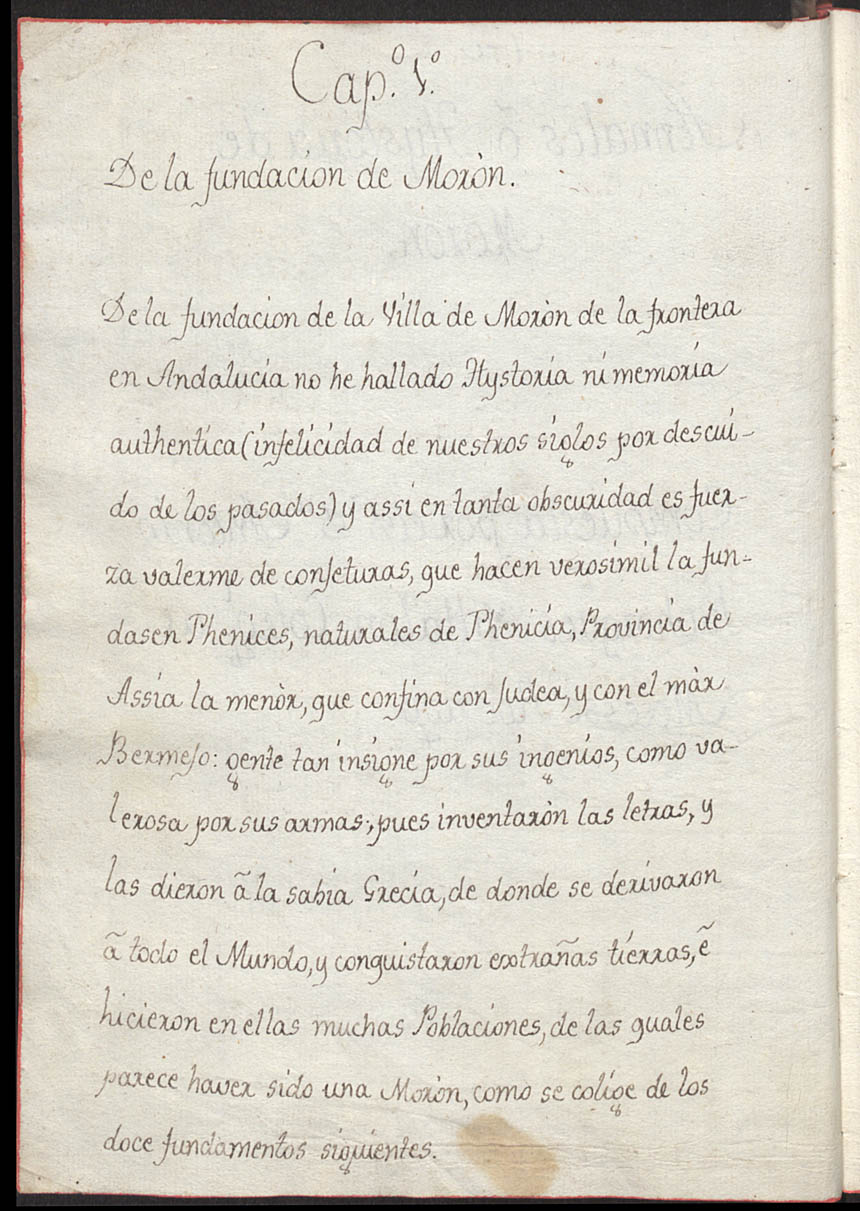 Cap.º 1.º
De la fundacion de Moròn.
De la fundacion de la Villa de Moròn de la frontera
en Andalucía no he hallado Hystoria ni memoria
authentica (infelicidad de nuestros siglos por descui-
do de los pasados) y assi en tanta obscuridad es fuer-
za valerme de conjeturas, que hacen verosimil la fun-
dasen Phenices, naturales de Phenicia, Provincia de
Assia la menòr, que confina con Judea, y con el màr
Bermejo: gente tan insigne por sus ingenios, como va-
lerosa por sus armas, pues inventaròn las letras, y
las dieron ã la sabia Grecia, de donde se derivaron
ã todo el Mundo, y conquistaron extrañas tierras, ẽ
hicieron en ellas muchas Poblaciones, de las quales
parece haver sido una Moròn, como se colige de los
doce fundamentos siguientes.